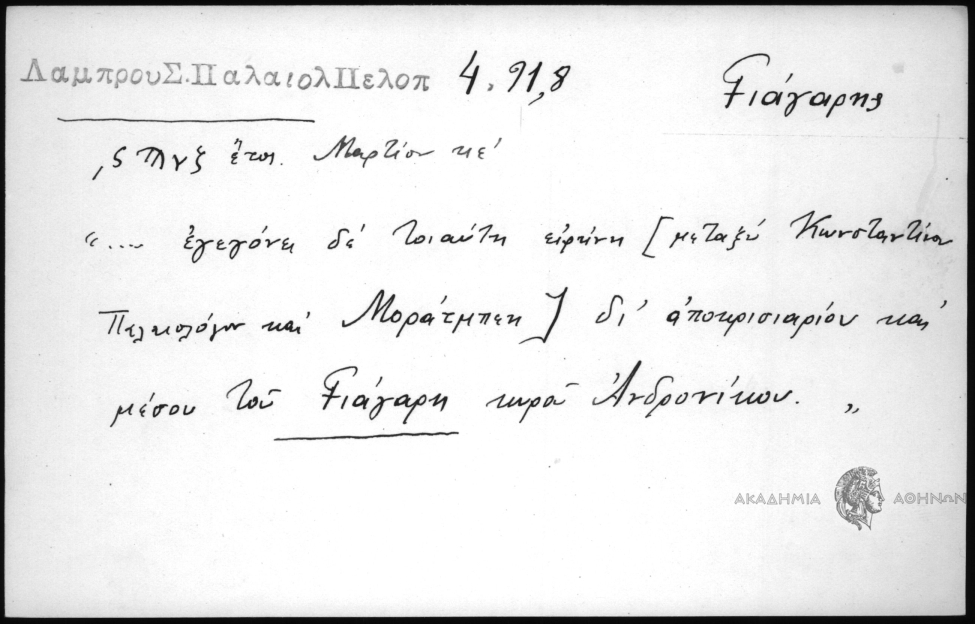 ΛαμπρουΣ.ΠαλαιολΠελοπ 4.91,8
Γιάγαρης
ἔτος. Μαρτίου κε´
"... ἐγεγόνει δέ τοιαύτη εἰρήνη [μεταξύ Κωνσταντίνου
Παλαιολόγου καί Μοράτμπεη] δι' ἀποκρισιαρίου καί
μέσου τοῦ Γιάγαρη κυροῦ Ἀνδρονίκου. "
ΑΚΑΔΗΜΙΑ ΑΘΗΝΩΝ